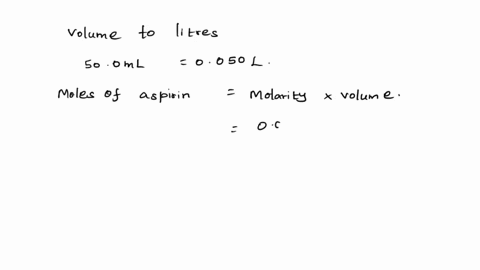 Volume to litres
50.0mL = 0.050L.
Moles of aspirin = Molarity x volume.
= 0.